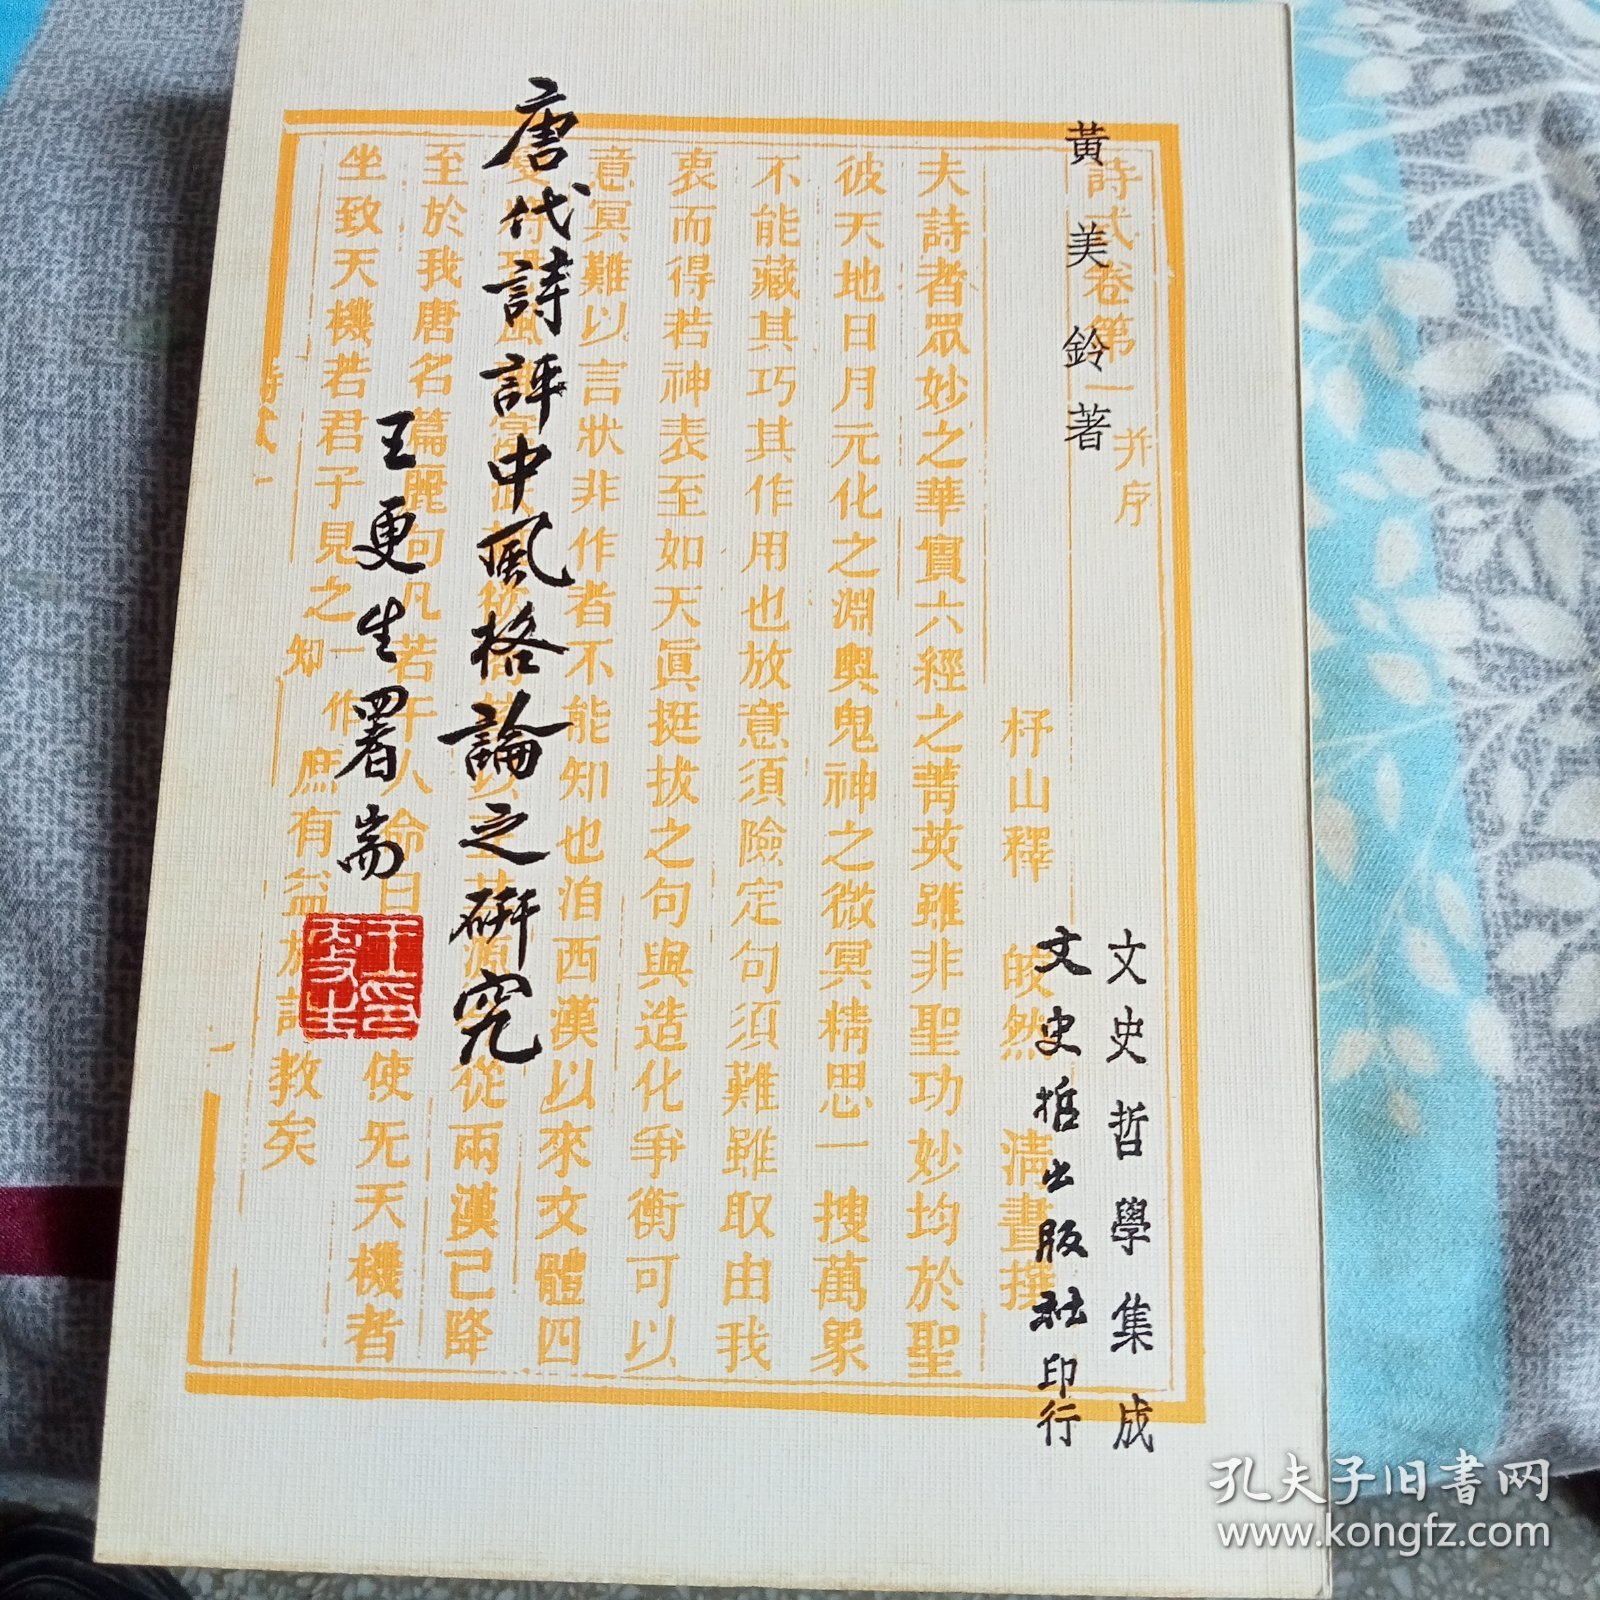 黃美鈴著
唐代詩評中風格論之研究
王更生署耑
文史哲學集成
文史哲出版社印行
詩式卷第一并序
杼山釋 皎然 清晝撰
夫詩者眾妙之華實六經之菁英雖非聖功妙均於聖
彼天地日月元化之淵奧鬼神之微冥精思一搜萬象
不能藏其巧其作用也放意須險定句須難雖取由我
衷而得若神表至如天眞挺拔之句與造化爭衡可以
意冥難以言狀非作者不能知也洎西漢以來文體四
從兩漢已降
至於我唐名篇麗句凡若干人命曰
使旡天機者
坐致天機若君子見之一作知庶有益於詩教矣
孔夫子旧書网
www.kongfz.com